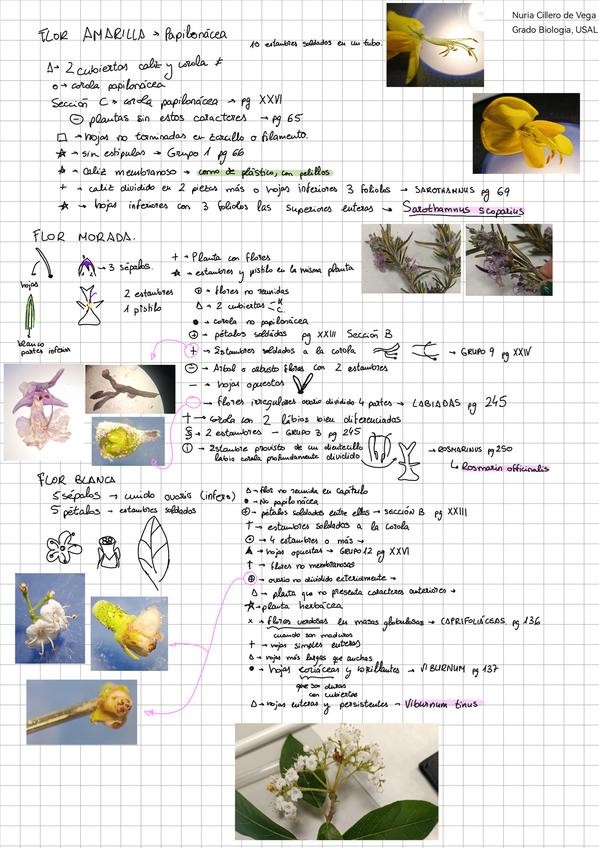 Nuria Cillero de Vega
Grado Biología, USAL
FLOR AMARILLA → Papilonácea
10 estambres soldados en un tubo.
Δ → 2 cubiertas caliz y corola ≠
o → corola papilonácea
Sección C → corola papilonácea → pg XXVI
⊖ plantas sin estos caracteres → pg 65
□ → hojas no terminadas en zarcillo o filamento.
★ → sin estípulas → Grupo 1 pg 66
★ → caliz membranoso → como de plástico, con pelillos
+ → caliz dividido en 2 piezas más o hojas inferiores 3 foliolos → SAROTHAMNUS pg 69
★ → hojas inferiores con 3 foliolos las superiores enteras → Sarothamnus scoparius
FLOR MORADA.
→ 3 sépalos.
hojas
2 estambres
1 pistilo
blanco
partes inferior
+ → Planta con flores
★ → estambres y pistilo en la misma planta
⊕ → flores no reunidas
Δ → 2 cubiertas K C
● → corola no papilonácea
⊕ → pétalos soldados pg XXIII Sección B
+ → Estambres soldados a la corola → GRUPO 9 pg XXIV
⊖ → Arbol o arbusto flores con 2 estambres
– → hojas opuestas
→ flores irregulares ovario dividido 4 partes → LABIADAS pg 245
† → corola con 2 lábios bien diferenciados
§ → 2 estambres – GRUPO 3 pg 245
→ 2 estambre provisto de un dientecillo
labio corola profundamente dividido
→ ROSMARINUS pg 250
↳ Rosmarin officinalis
FLOR BLANCA
5 sépalos → unido ovario (infero)
5 pétalos → estambres soldados
Δ → flor no reunida en capítulo
● → No papilonácea
⊕ → pétalos soldados entre ellos → SECCIÓN B pg XXIII
† → estambres soldados a la corola
⊙ → 4 estambres o más →
▲ → hojas opuestas → GRUPO 12 pg XXVI
† → flores no membranosas
⊕ → ovario no dividido exteriormente →
Δ → planta que no presenta caracteres anteriores →
★ → planta herbácea
x → flores verdosas en masas globulosas → CAPRIFOLIÁCEAS pg 136
cuando son maduras
+ → hojas simples enteras
Δ → hojas más largas que anchas
● → hojas coriáceas y brillantes → VIBURNUM pg 137
que son duras
con cubiertas
Δ → hojas enteras y persistentes → Viburnum tinus